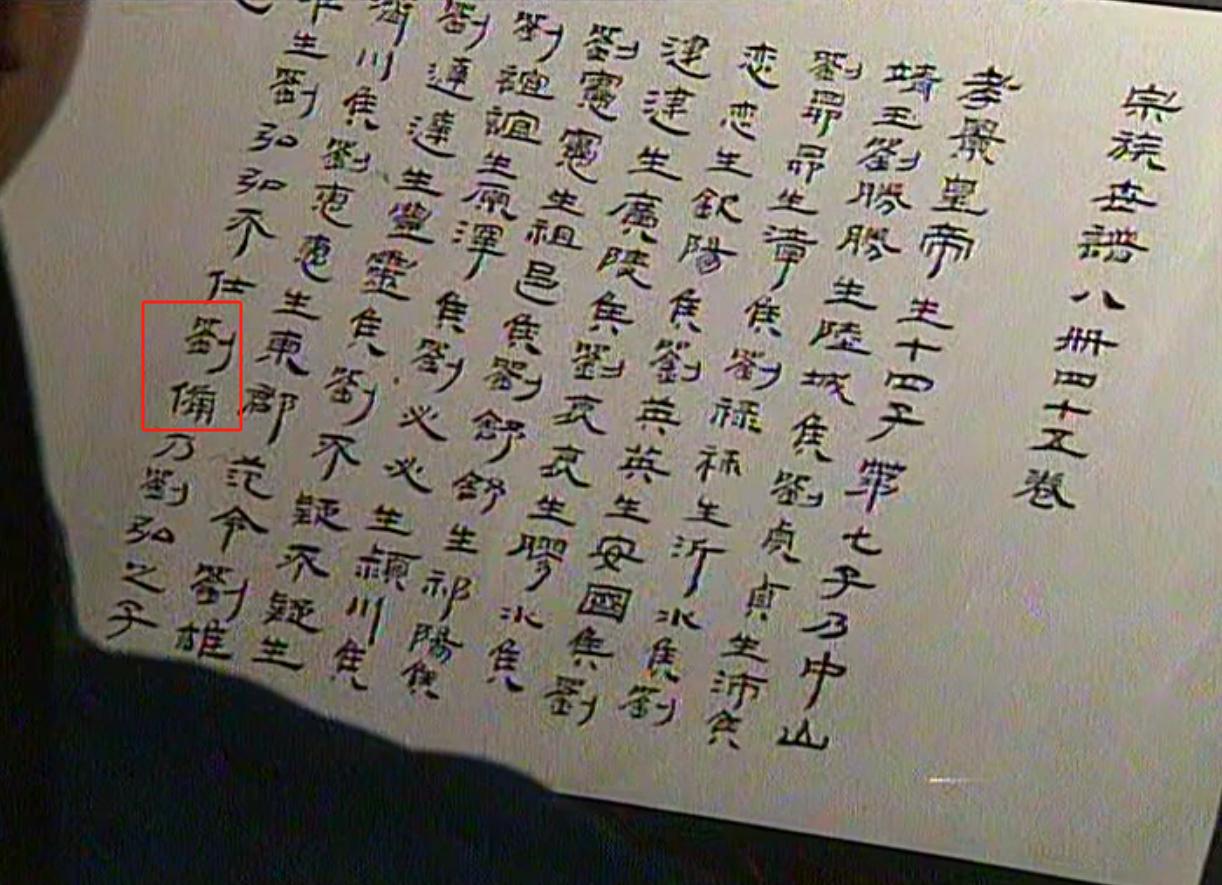 宗族世譜八冊四十五卷
孝景皇帝生十四子第七子乃中山
靖王劉勝勝生陸城侯劉貞貞生沛侯
劉昂昂生漳侯劉祿祿生沂水侯劉
恋恋生欽陽侯劉英英生安國侯劉
建建生廣陵侯劉哀哀生膠水侯
劉憲憲生祖邑侯劉舒舒生祁陽侯
劉誼誼生原澤侯劉必必生潁川侯
劉達達生豐靈侯劉不疑不疑生
濟川侯劉惠惠生東郡范令劉雄
生劉弘弘不仕劉備乃劉弘之子